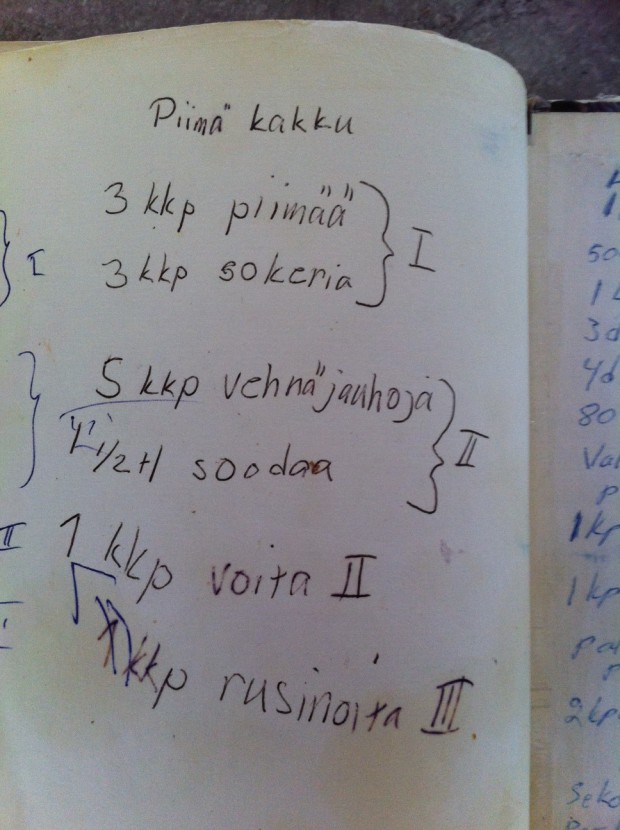 Piimä kakku
3 kkp piimää } I
3 kkp sokeria
5 kkp vehnäjauhoja } II
1/2 tl soodaa
1 kkp voita II
1 kkp rusinoita III
I
II
50
1
3d
4d
80
Va
p
1 kp
1 kp
Pa
2 kp
Seko